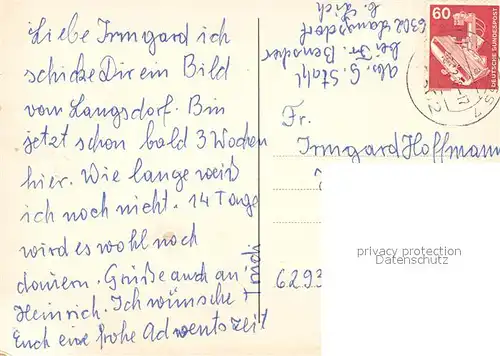 Liebe Irmgard ich
schicke Dir ein Bild
von Langsdorf. Bin
jetzt schon bald 3 Wochen
hier. Wie lange weiß
ich noch nicht. 14 Tage
wird es wohl noch
dauern. Grüße auch an
Heinrich. Ich wünsche
Euch eine frohe Adventszeit
Abs. G. Stahl
bei Fr. Bender
6302 Langsdorf
b. Lich
60
DEUTSCHE BUNDESPOST
Fr.
Irmgard Hoffmann
6293
privacy protection
Datenschutz